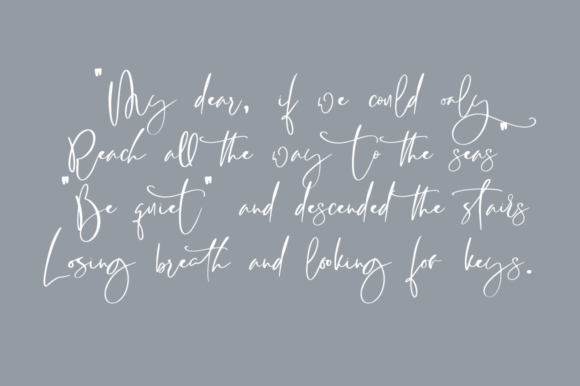 "My dear, if we could only
Reach all the way to the seas"
"Be quiet" and descended the stairs
Losing breath and looking for keys.